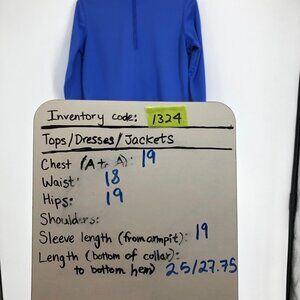 Inventory code: 1324
Tops/Dresses/Jackets
Chest (A to A): 19
Waist: 18
Hips: 19
Shoulders:
Sleeve length (from armpit): 19
Length (bottom of collar):
to bottom hem) 25/27.75